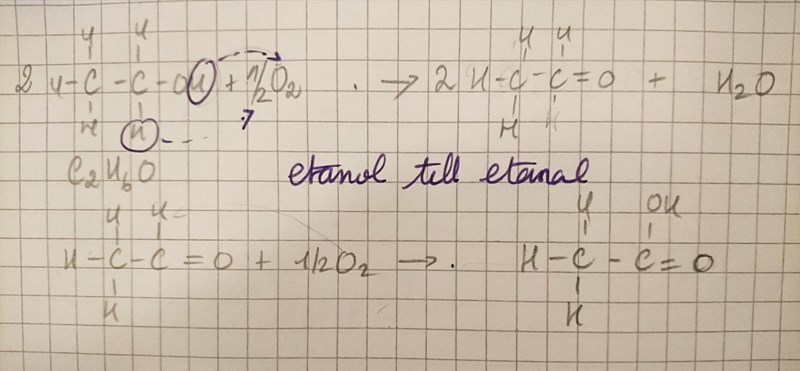 H H H H
2 H-C-C-OH + 1/2O2 → 2 H-C-C=O + H2O
H H H
C2H6O etanol till etanal
H H H OH
H-C-C=O + 1/2O2 → H-C-C=O
H H